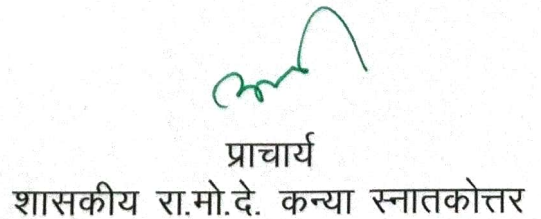 प्राचार्य
शासकीय रा.मो.दे. कन्या स्नातकोत्तर